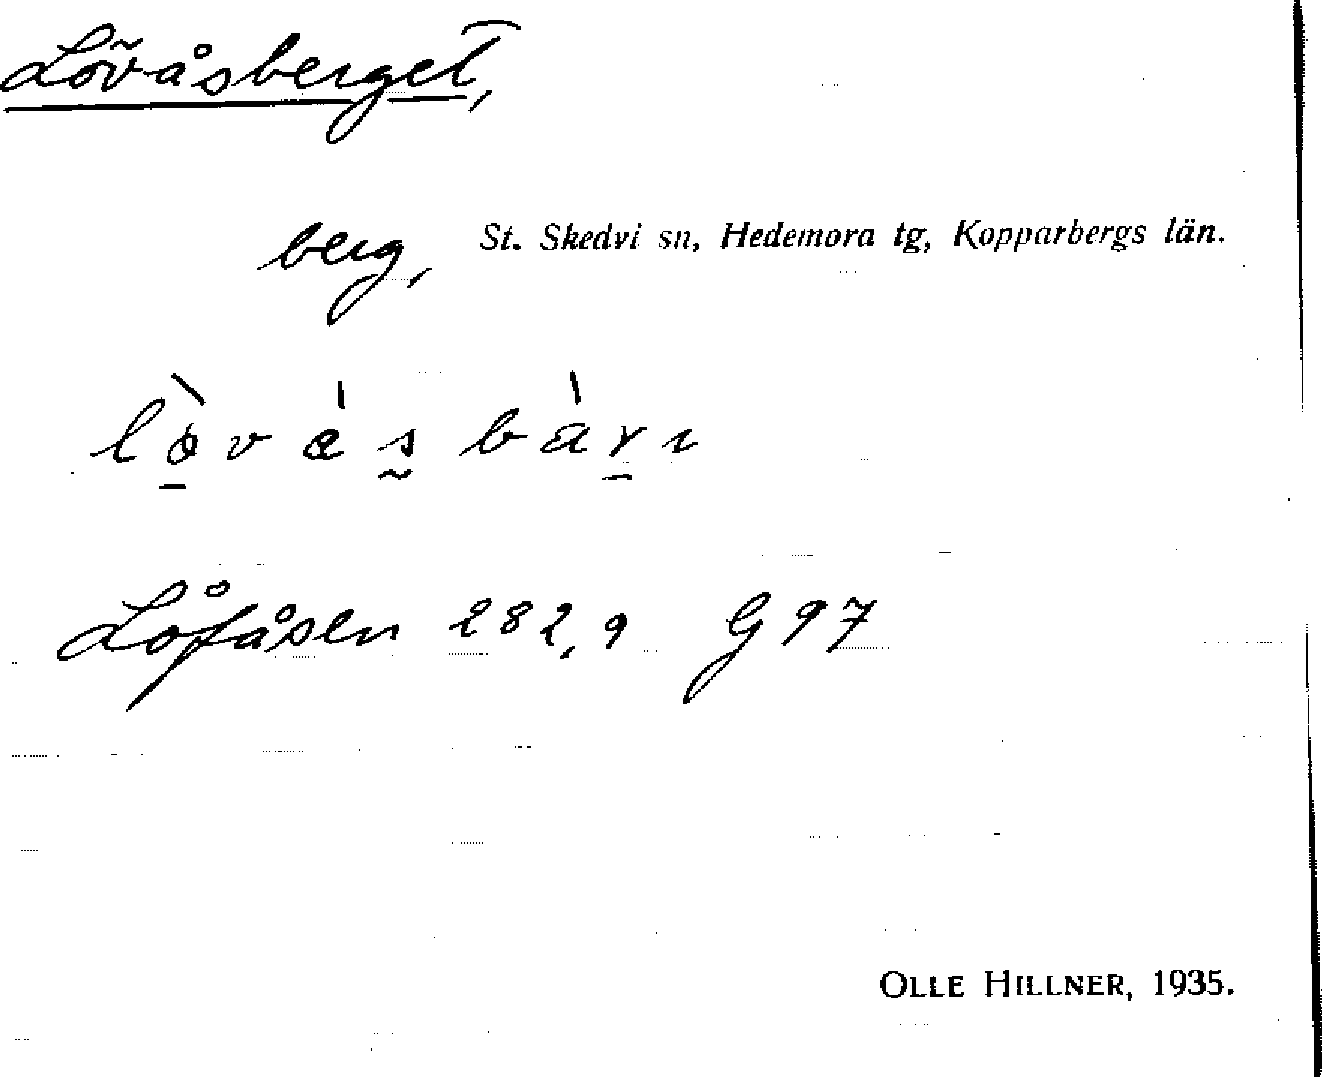 Lövåsberget,
berg, St. Skedvi sn, Hedemora tg, Kopparbergs län.
Löfåsen 282,9 G 97
OLLE HILLNER, 1935.